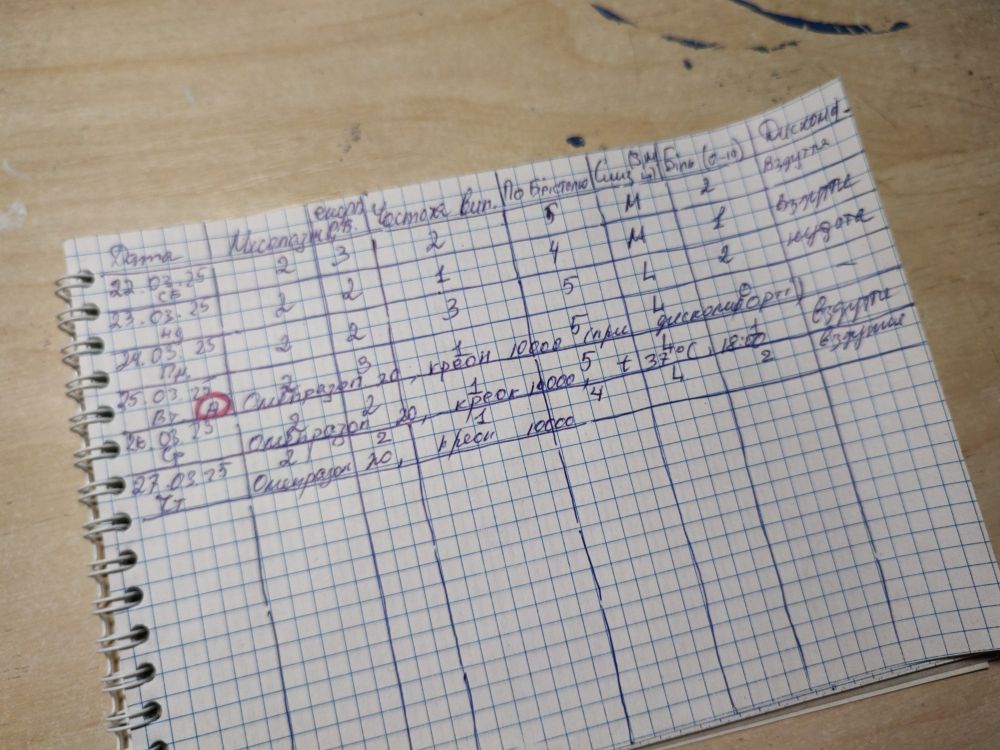 Дата Частота вип. По Брістолю Біль (0-10) Дискомф-
22.03.25 2 3 2 5 М 2 вздутте
Сб
23.03.25 2 2 1 4 М 1 вздутте
Нд
24.03.25 2 2 3 5 4 2 нудота
Пн
25.03.25 2 3 1 5 4 0 —
Вт А Омепразол 20, креон 10000 (при дискомфорті)
26.03.25 2 2 1 5 4 1 вздутте
Ср Омепразол 20, креон 10000, t 37°C, 18:00
27.03.25 2 2 1 4 4 2 вздутте
Чт Омепразол 20, креон 10000